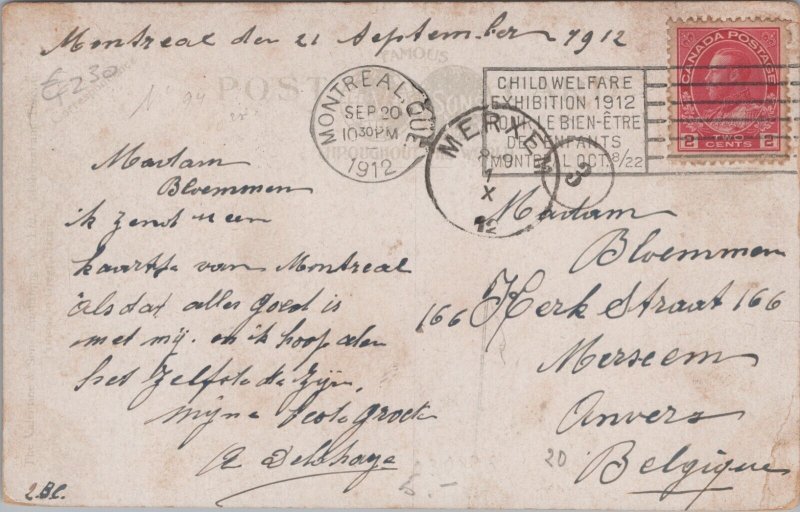 Montreal den 21 September 1912
€230
POST
FAMOUS
MONTREAL, QUE.
SEP 20
10 30 PM
1912
CHILD WELFARE
EXHIBITION 1912
POUR LE BIEN-ÊTRE
DES ENFANTS
MONTREAL OCT. 8/22
CANADA POSTAGE
2 TWO CENTS 2
MERXEM
9
1
X
12
3
Madam
Bloemmen
ik zend u een
kaartje van Montreal
als dat alles goed is
met mij. en ik hoop den
het zelfste de zijn,
mijne beste groet
A Delahaye
Madam
Bloemmen
166 Kerk Straat 166
Merxem
Anvers
Belgique
20
6.-
2.BC.